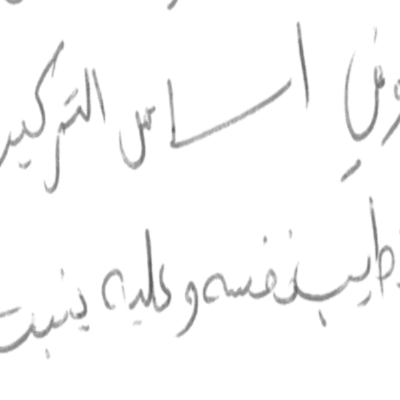 اساس التركيب
طيب نفسه وعليه ينبت